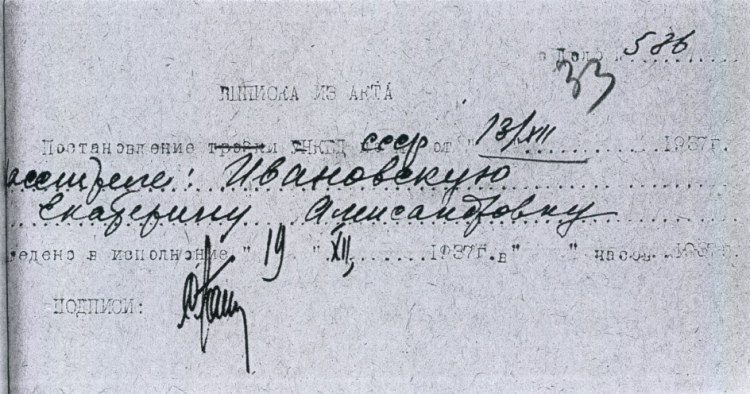 Дело 586
33
ВЫПИСКА ИЗ АКТА
Постановление тройки УНКВД СССР от "13/XII 1937г.
расстреле: Ивановскую
Екатерину Александровну
ведено в исполнение "19" XII, 1937г. в " " часов
ПОДПИСИ: